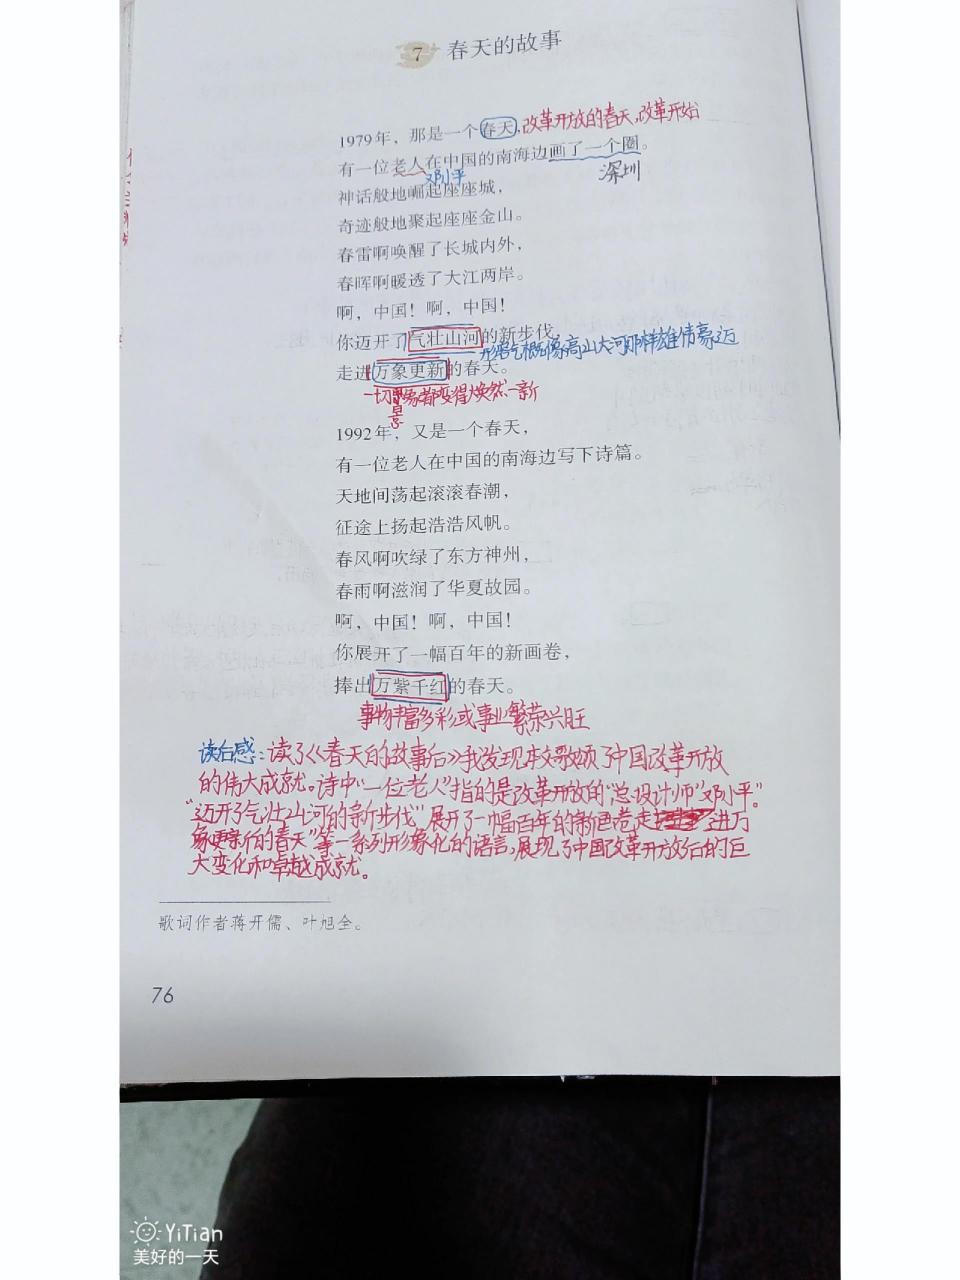 7 春天的故事
1979年，那是一个春天，改革开放的春天，改革开始
有一位老人在中国的南海边画了一个圈。
邓小平 深圳
神话般地崛起座座城，
奇迹般地聚起座座金山。
春雷啊唤醒了长城内外，
春晖啊暖透了大江两岸。
啊，中国！啊，中国！
你迈开了气壮山河的新步伐，
形容气概像高山大河那样雄伟豪迈
走进万象更新的春天。
一切 景象都变得焕然一新
1992年，又是一个春天，
有一位老人在中国的南海边写下诗篇。
天地间荡起滚滚春潮，
征途上扬起浩浩风帆。
春风啊吹绿了东方神州，
春雨啊滋润了华夏故园。
啊，中国！啊，中国！
你展开了一幅百年的新画卷，
捧出万紫千红的春天。
事物丰富多彩或事业繁荣兴旺
读后感：读了《春天的故事后》我发现 歌颂了中国改革开放
的伟大成就。诗中“一位老人”指的是改革开放的“总设计师”邓小平。
“迈开了气壮山河的新步伐”展开了一幅百年的新画卷走 进万
象更新的春天”等一系列形象化的语言，展现了中国改革开放后的巨
大变化和卓越成就。
歌词作者蒋开儒、叶旭全。
76
YiTian
美好的一天